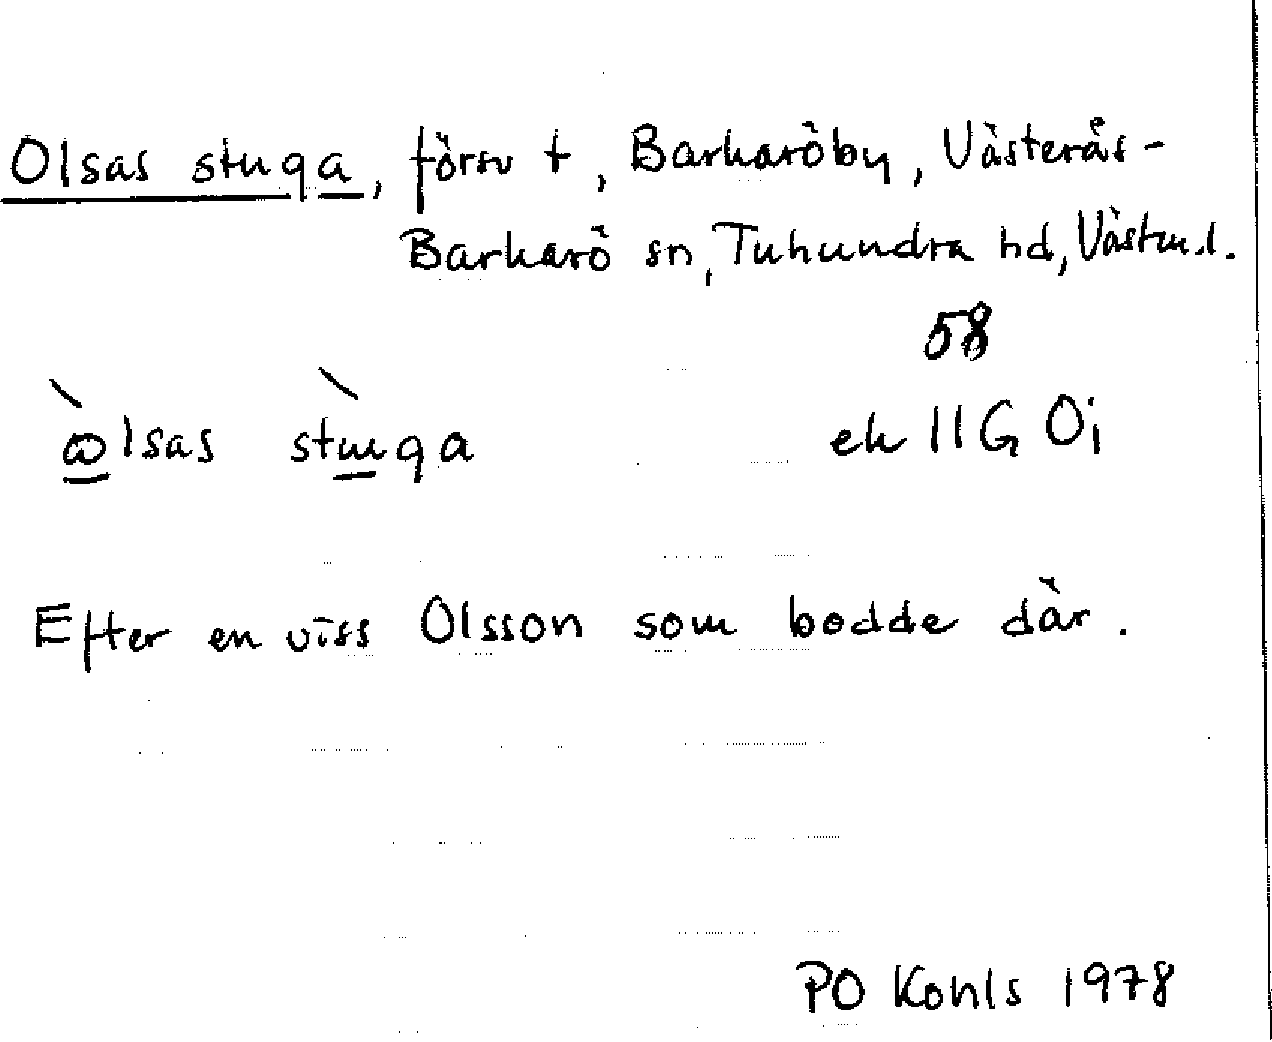 Olsas stuga, försv t, Barkaröby, Västerås-
Barkarö sn, Tuhundra hd, Västml.
58
òlsas stùga ek 11G 0i
Efter en viss Olsson som bodde där.
PO Kohls 1978